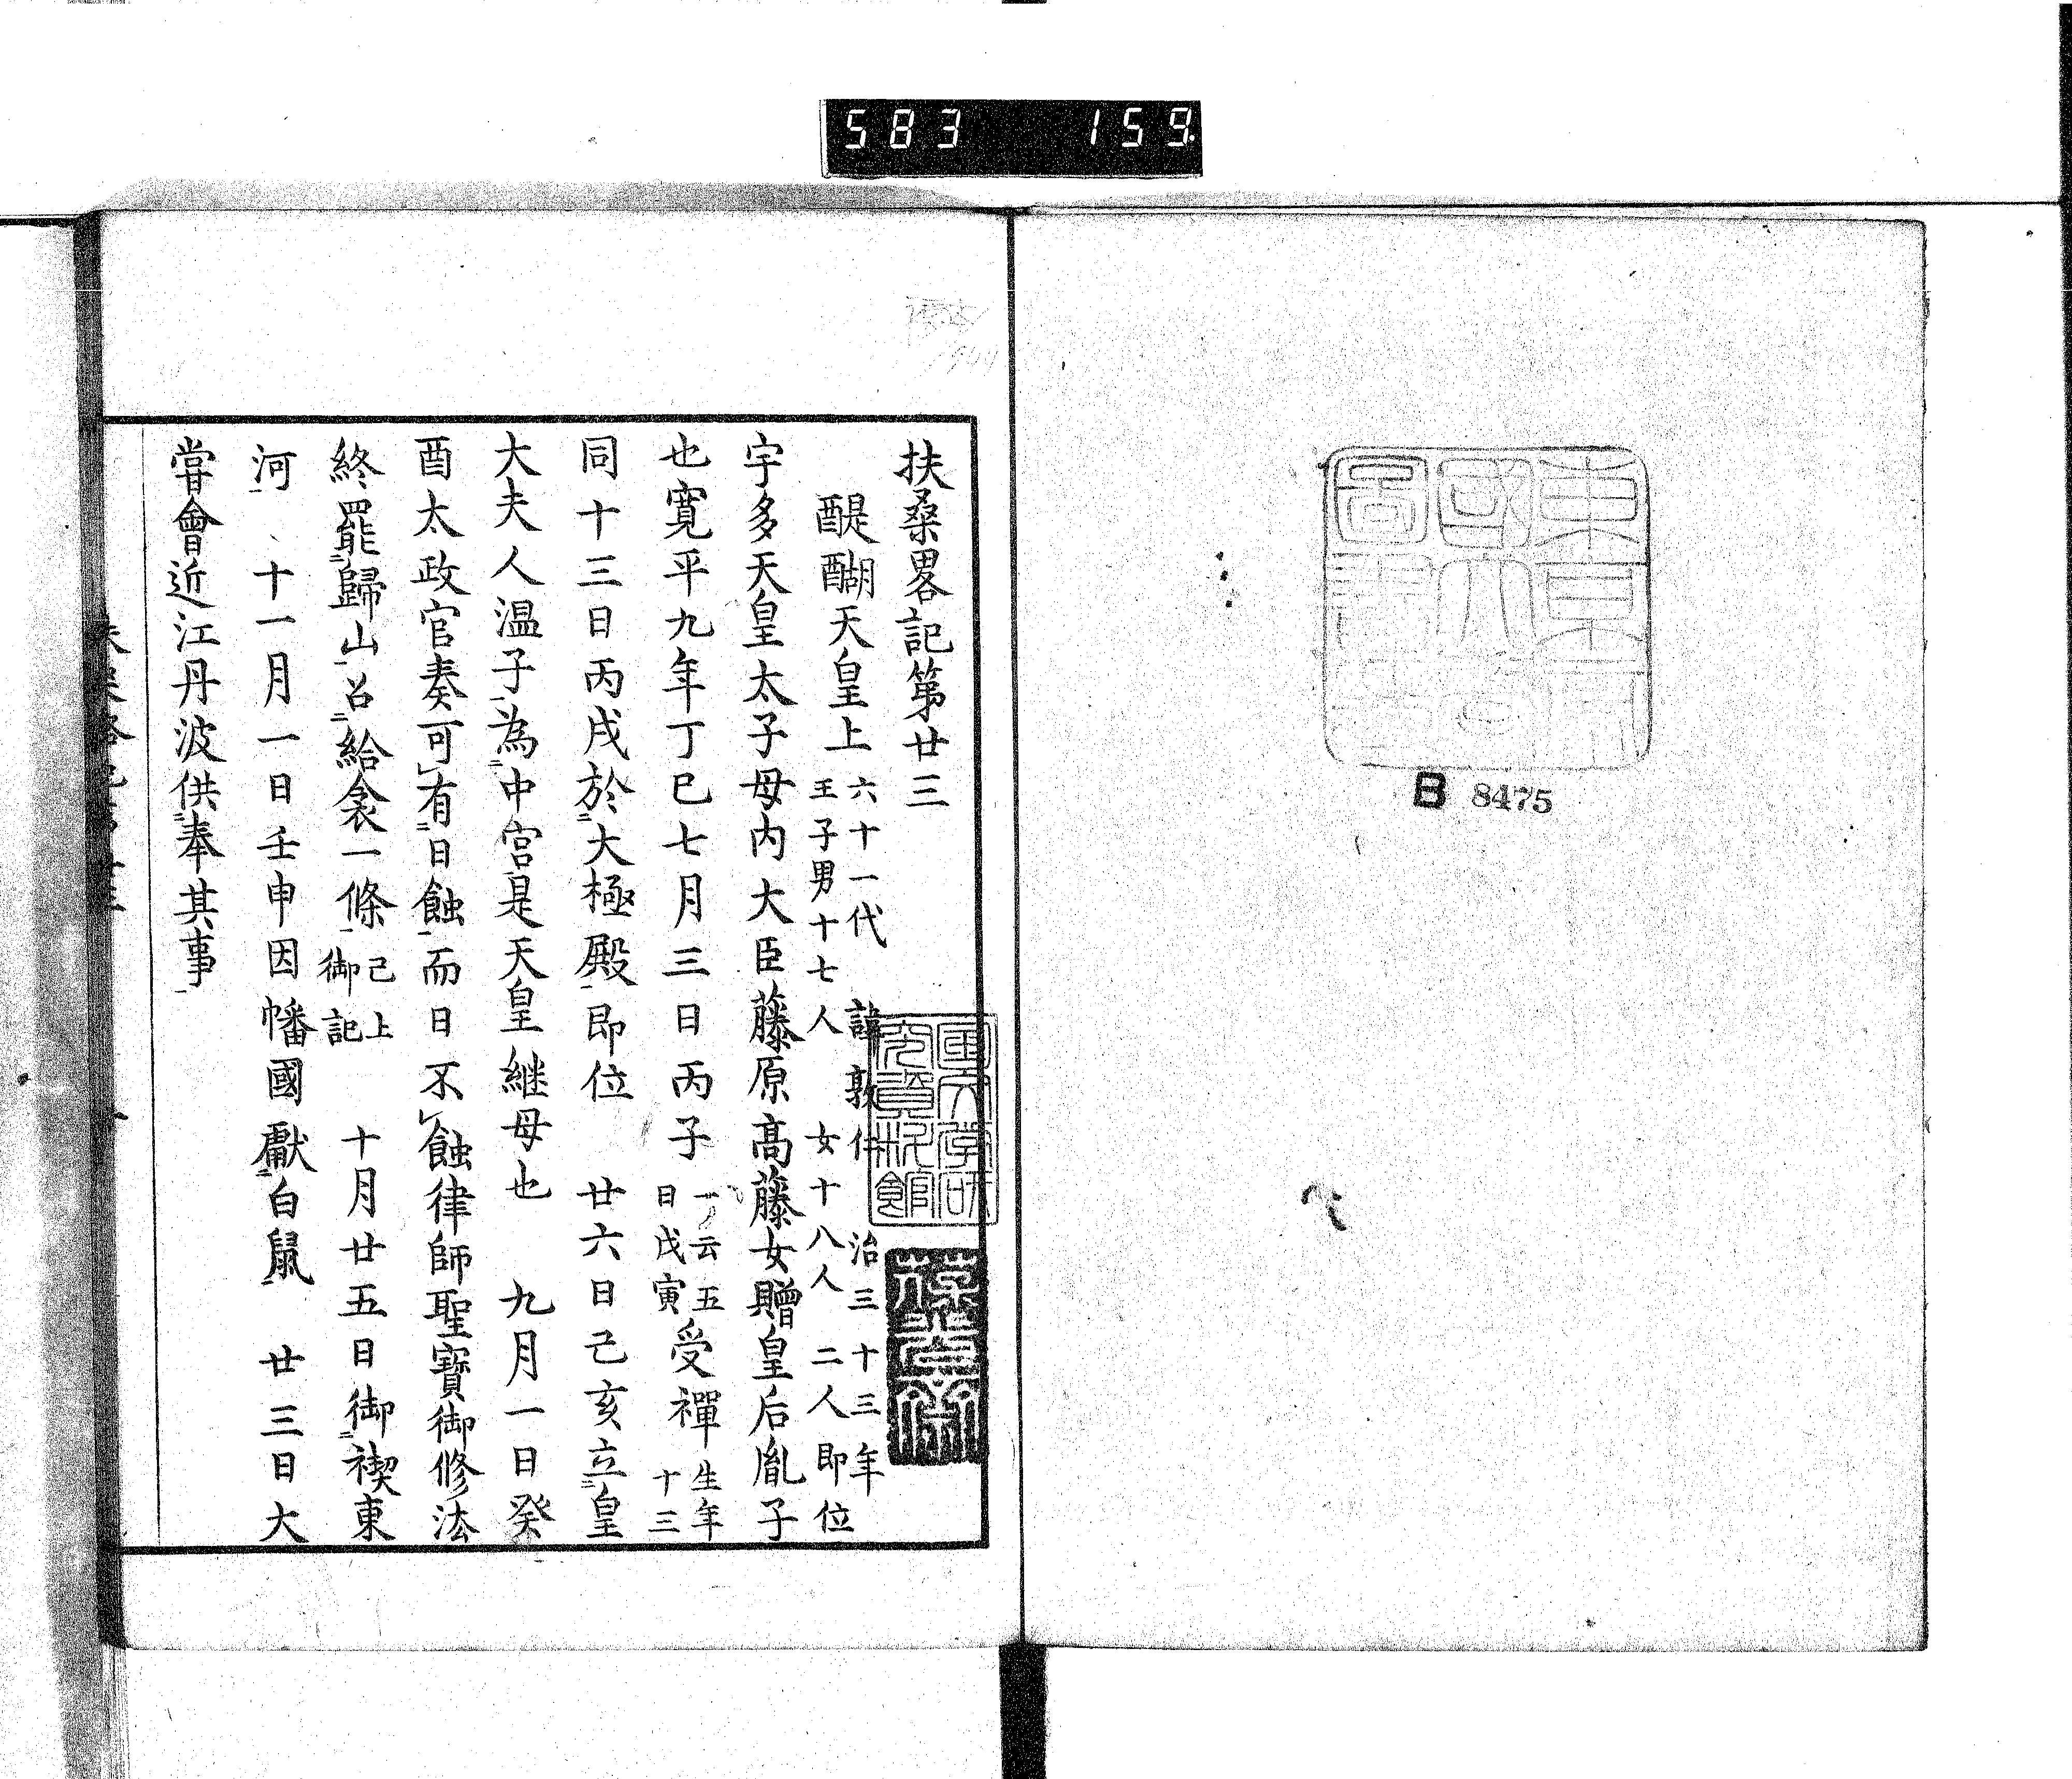 583 159
B 8475
東京帝國大學圖書
扶桑畧記第廿三
醍醐天皇上 六十一代 諱敦仁 治三十三年
王子男十七人 女十八人 二人即位
宇多天皇太子母内大臣藤原高藤女贈皇后胤子
也寛平九年丁巳七月三日丙子 一云五日戊寅 受禪 生年十三
同十三日丙戌於大極殿即位 廿六日己亥立皇
大夫人温子為中宮是天皇継母也 九月一日癸
酉太政官奏可有日蝕而日不蝕律師聖寶御修法
終罷歸山召給衾一條 己上御記 十月廿五日御禊東
河 十一月一日壬申因幡國獻白鼠 廿三日大
甞會近江丹波供奉其事
国文学研究資料館